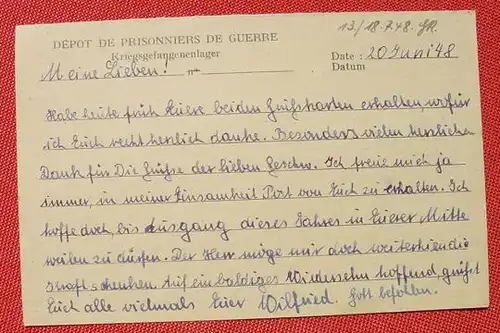 13./18.7.48. GR.
DÉPOT DE PRISONNIERS DE GUERRE
Kriegsgefangenenlager
Date : 20 Juni 48
Datum
Meine Lieben!
Habe heute früh Euere beiden Grußkarten erhalten, wofür
ich Euch recht herzlich danke. Besonders vielen herzlichen
Dank für Die Grüße der lieben Geschw. Ich freue mich ja
immer, in meiner Einsamkeit Post von Euch zu erhalten. Ich
hoffe doch, bis Ausgang dieses Jahres in Euerer Mitte
weilen zu dürfen. Der Herr möge mir doch weiterhin die
Kraft schenken. Auf ein baldiges Wiedersehn hoffend, grüßt
Euch alle vielmals Euer Wilfried. Gott befohlen.